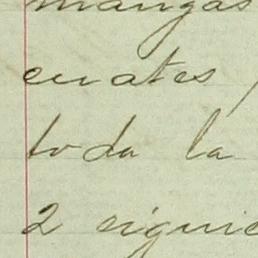 mangas
cuates,
toda la
2 siguie